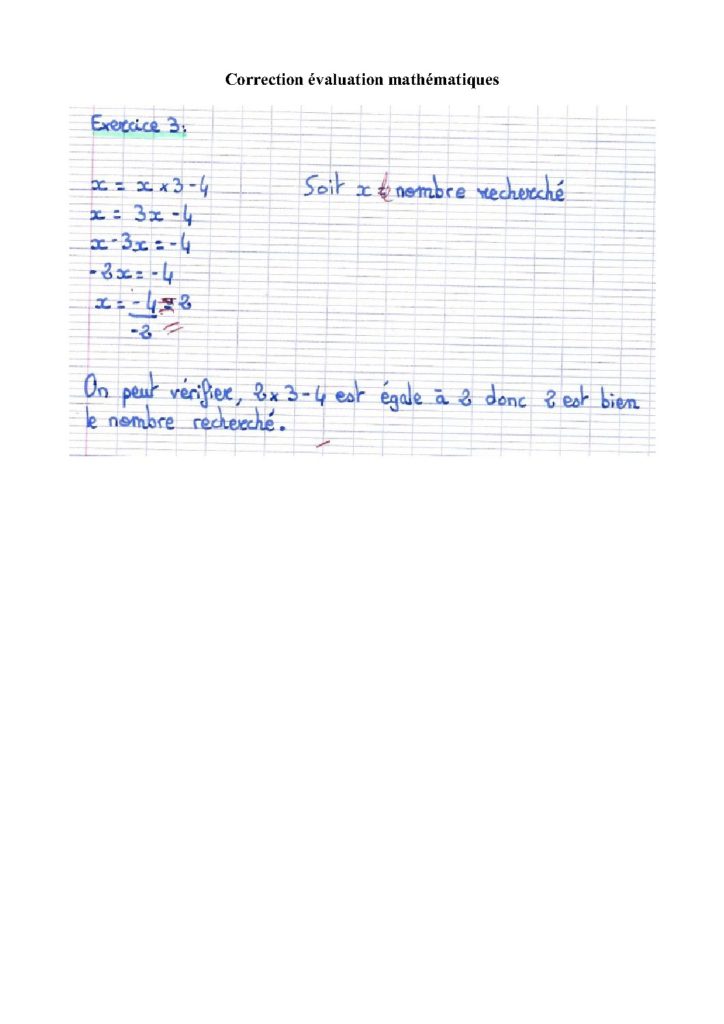 Correction évaluation mathématiques
Exercice 3:
x = x × 3 - 4 Soit x le nombre recherché
x = 3x - 4
x - 3x = -4
-2x = -4
x = -4 = 2
-2
On peut vérifier, 2 × 3 - 4 est égale à 2 donc 2 est bien
le nombre recherché.